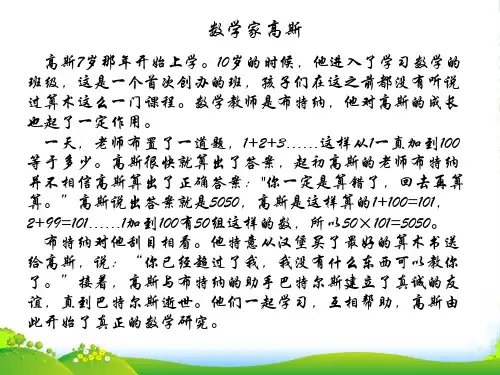 数学家高斯
高斯7岁那年开始上学。10岁的时候，他进入了学习数学的
班级，这是一个首次创办的班，孩子们在这之前都没有听说
过算术这么一门课程。数学教师是布特纳，他对高斯的成长
也起了一定作用。
一天，老师布置了一道题，1+2+3……这样从1一直加到100
等于多少。高斯很快就算出了答案，起初高斯的老师布特纳
并不相信高斯算出了正确答案："你一定是算错了，回去再算
算。”高斯说出答案就是5050，高斯是这样算的1+100=101，
2+99=101……1加到100有50组这样的数，所以50×101=5050。
布特纳对他刮目相看。他特意从汉堡买了最好的算术书送
给高斯，说：“你已经超过了我，我没有什么东西可以教你
了。”接着，高斯与布特纳的助手巴特尔斯建立了真诚的友
谊，直到巴特尔斯逝世。他们一起学习，互相帮助，高斯由
此开始了真正的数学研究。